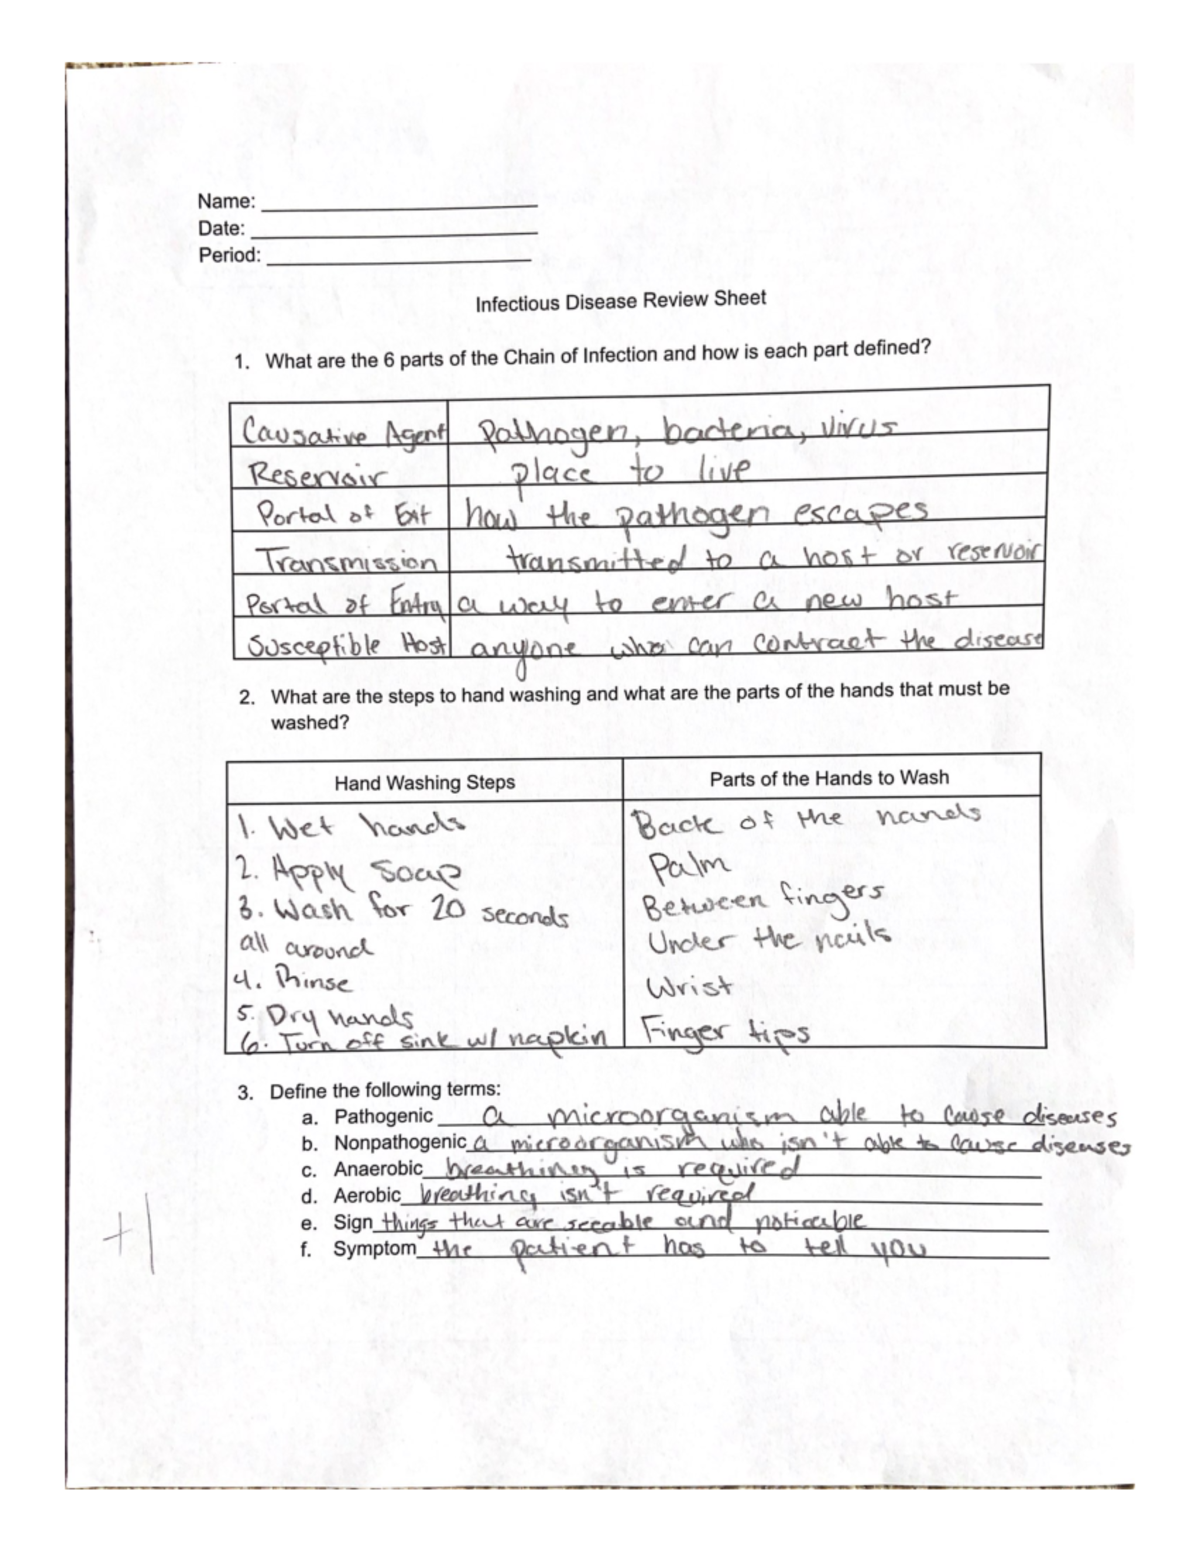 Name:
Date:
Period:
Infectious Disease Review Sheet
1. What are the 6 parts of the Chain of Infection and how is each part defined?
Causative Agent Pathogen, bacteria, virus
Reservoir place to live
Portal of Exit how the pathogen escapes
Transmission transmitted to a host or reservoir
Portal of Entry a way to enter a new host
Susceptible Host anyone who can contract the disease
2. What are the steps to hand washing and what are the parts of the hands that must be
washed?
Hand Washing Steps Parts of the Hands to Wash
1. Wet hands Back of the hands
2. Apply Soap Palm
3. Wash for 20 seconds Between fingers
all around Under the nails
4. Rinse Wrist
5. Dry hands
6. Turn off sink w/ napkin Finger tips
3. Define the following terms:
a. Pathogenic a microorganism able to cause diseases
b. Nonpathogenic a microorganism who isn't able to cause diseases
c. Anaerobic breathing is required
d. Aerobic breathing isn't required
e. Sign things that are seeable and noticeable
f. Symptom the patient has to tell you
+1